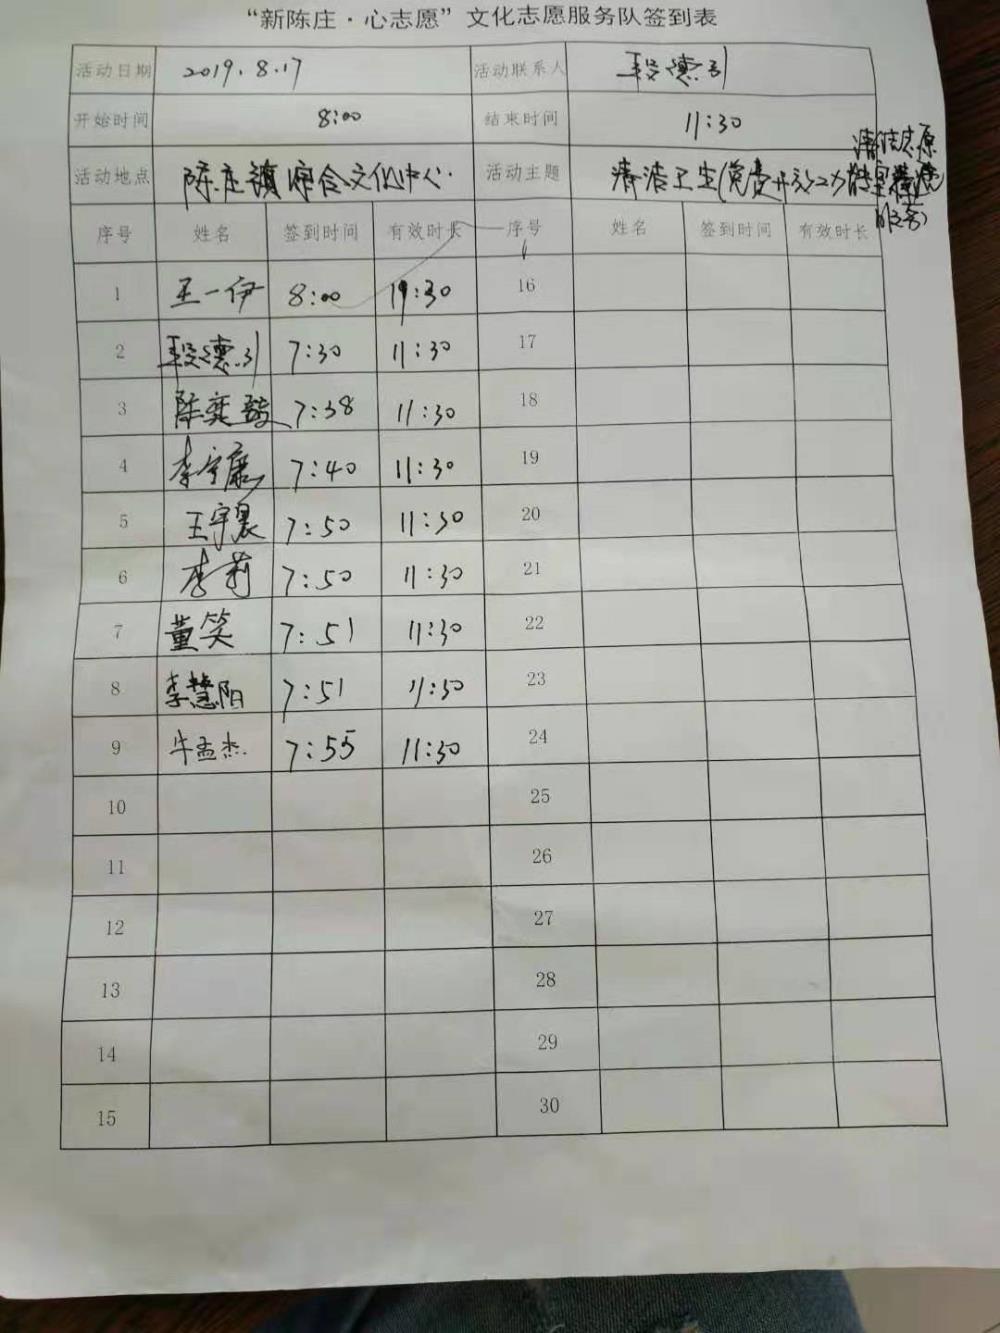 “新陈庄·心志愿”文化志愿服务队签到表
活动日期 2019.8.17 活动联系人 段德引
开始时间 8:00 结束时间 11:30
活动地点 陈庄镇综合文化中心 活动主题 清洁卫生(免费开放
清洁志愿
服务)
序号 姓名 签到时间 有效时长 序号 姓名 签到时间 有效时长
1 王一伊 8:00 11:30 16
2 段德引 7:30 11:30 17
3 陈奕 7:38 11:30 18
4 李宁康 7:40 11:30 19
5 王宇晨 7:50 11:30 20
6 李莉 7:50 11:30 21
7 董笑 7:51 11:30 22
8 李慧阳 7:51 11:30 23
9 牛孟杰 7:55 11:30 24
10 25
11 26
12 27
13 28
14 29
15 30